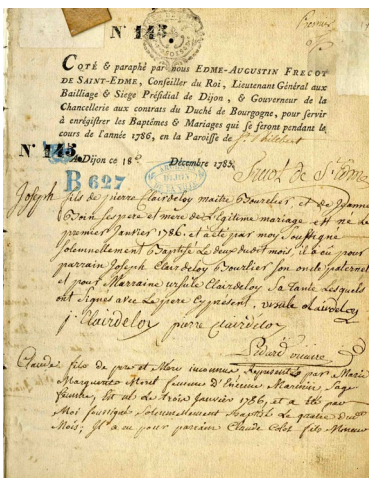 N° 145.
COTÉ & paraphé par nous EDME-AUGUSTIN FRECOT
DE SAINT-EDME, Conseiller du Roi, Lieutenant Général aux
Bailliage & Siege Présidial de Dijon, & Gouverneur de la
Chancellerie aux contrats du Duché de Bourgogne, pour servir
à enrégistrer les Baptêmes & Mariages qui se feront pendant le
cours de l'année 1786, en la Paroisse de St philibert
N° 145.
A Dijon ce 18e Décembre 1785.
B 627
Frecot de St Edme
Joseph fils de pierre Clairdeloy maitre Bourelier, et de Jeanne
ses pere et mere de Légitime mariage est né le
premier Janvier 1786. et a été par moy Soussigné
Solennellement Baptisé Le deux dudit mois, il a eu pour
parrain Joseph Clairdeloy Bourlier son oncle paternel
et pour Marraine ursule Clairdeloy sa tante Lesquels
ont signés avec Le pere cy présent. ursule Clairdeloy
j. Clairdeloy pierre clairdeloy
vicaire
Claude fils de pere et Mere inconnus, Représenté par Marie
Margueritte femme d'Etienne Sage
femme, né le trois Janvier 1786, et a été par
Moi soussigné Solennellement Baptisé Le quatre dudit
Mois; Il a eu pour parain Claude fils